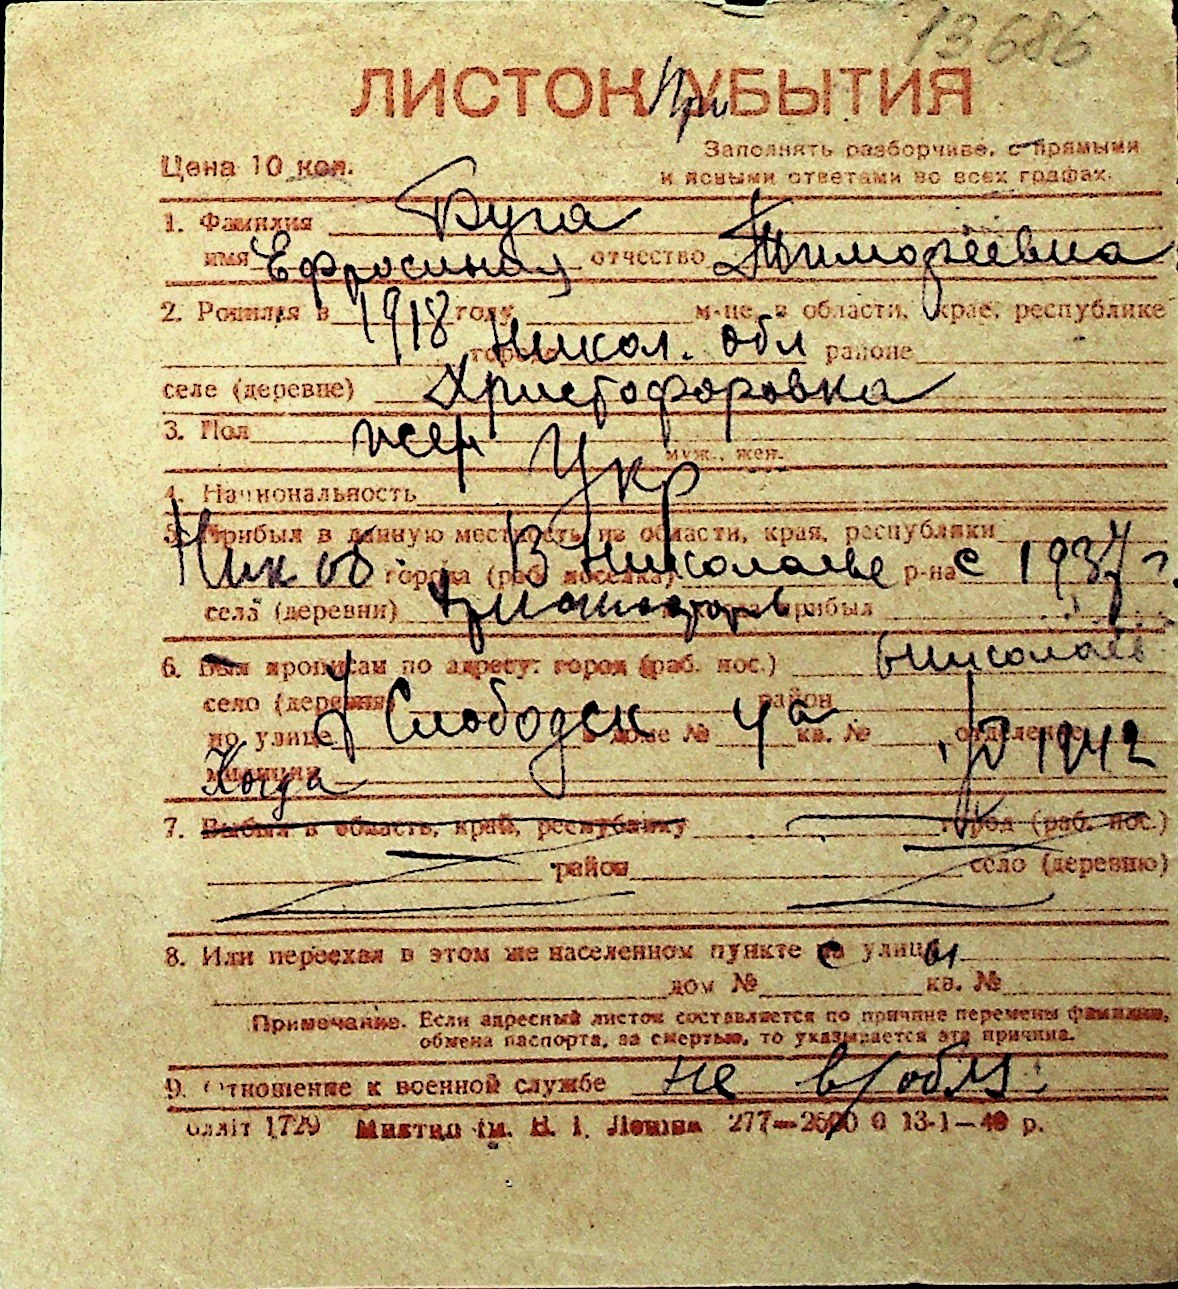 13686
ЛИСТОК При УБЫТИЯ
Цена 10 коп.
Заполнять разборчиво, с прямыми
и ясными ответами во всех графах.
1. Фамилия Буга
имя Ефросиния отчество Тимофеевна
2. Родился в 1918 году м-це, в области, крае, республике
городе Никол. обл районе
селе (деревне) Христофоровка
3. Пол жен
муж., жен.
4. Национальность Укр
5. Прибыл в данную местность из области, края, республики
Ник об города (раб. поселка) В Николаеве р-на с 1937 г.
села (деревни) прибыл
6. Был прописан по адресу: город (раб. пос.) Николаев
село (деревня) район
по улице Слободск в доме № 4а кв. № отделение
милиции Когда до 1942
7. Выбыл в область, край, республику город (раб. пос.)
район село (деревню)
8. Или переехал в этом же населенном пункте с улицы
дом № кв. №
Примечание. Если адресный листок составляется по причине перемены фамилии,
обмена паспорта, за смертью, то указывается эта причина.
9. Отношение к военной службе не в/обяз
олліт 1729 Миктип ім. В. І. Леніна 277—2500 0 13-1—40 р.